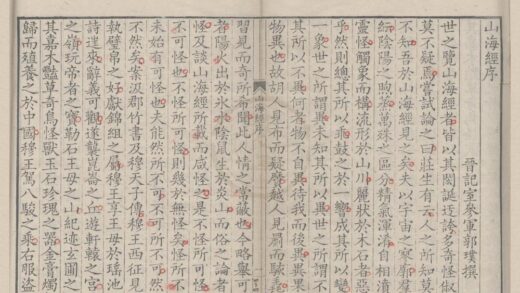 山海經序
晉記室參軍郭璞撰
世之覽山海經者皆以其閎誕迂誇多奇怪俶
莫不疑焉嘗試論之曰莊生有云人之所知莫
不知吾於山海經見之矣夫以宇宙之寥廓羣
紜陰陽之煦蒸萬殊之區分精氣渾淆自相濆
靈怪觸象而構流形於山川麗狀於木石者惡
乎然則總其所以乖鼓之於一響成其所以變
一象世之所謂異未知其所以異世之所謂不
所以不異何者物不自異待我而後異異果
物異也故胡人見布而疑黂越人見罽而駭毳
山海經序
習見而奇所希聞此人情之常蔽也今略舉可
者陽火出於氷水陰鼠生於炎山而俗之論者
怪及談山海經所載而咸怪之是不怪所可怪
不可怪也不怪所可怪則幾於無怪矣怪所不
未始有可怪也夫能然所不可不可所不可然
不然矣案汲郡竹書及穆天子傳穆王西征見
執璧帛之好獻錦組之屬穆王享王母於瑤池
詩往來辭義可觀遂襲崑崙之丘遊軒轅之宮
之嶺玩帝者之寶勒石王母之山紀迹玄圃之
其嘉木豔草奇鳥怪獸玉石珍瑰之器金膏燭
歸而殖養之於中國穆王駕八駿之乘右服盜